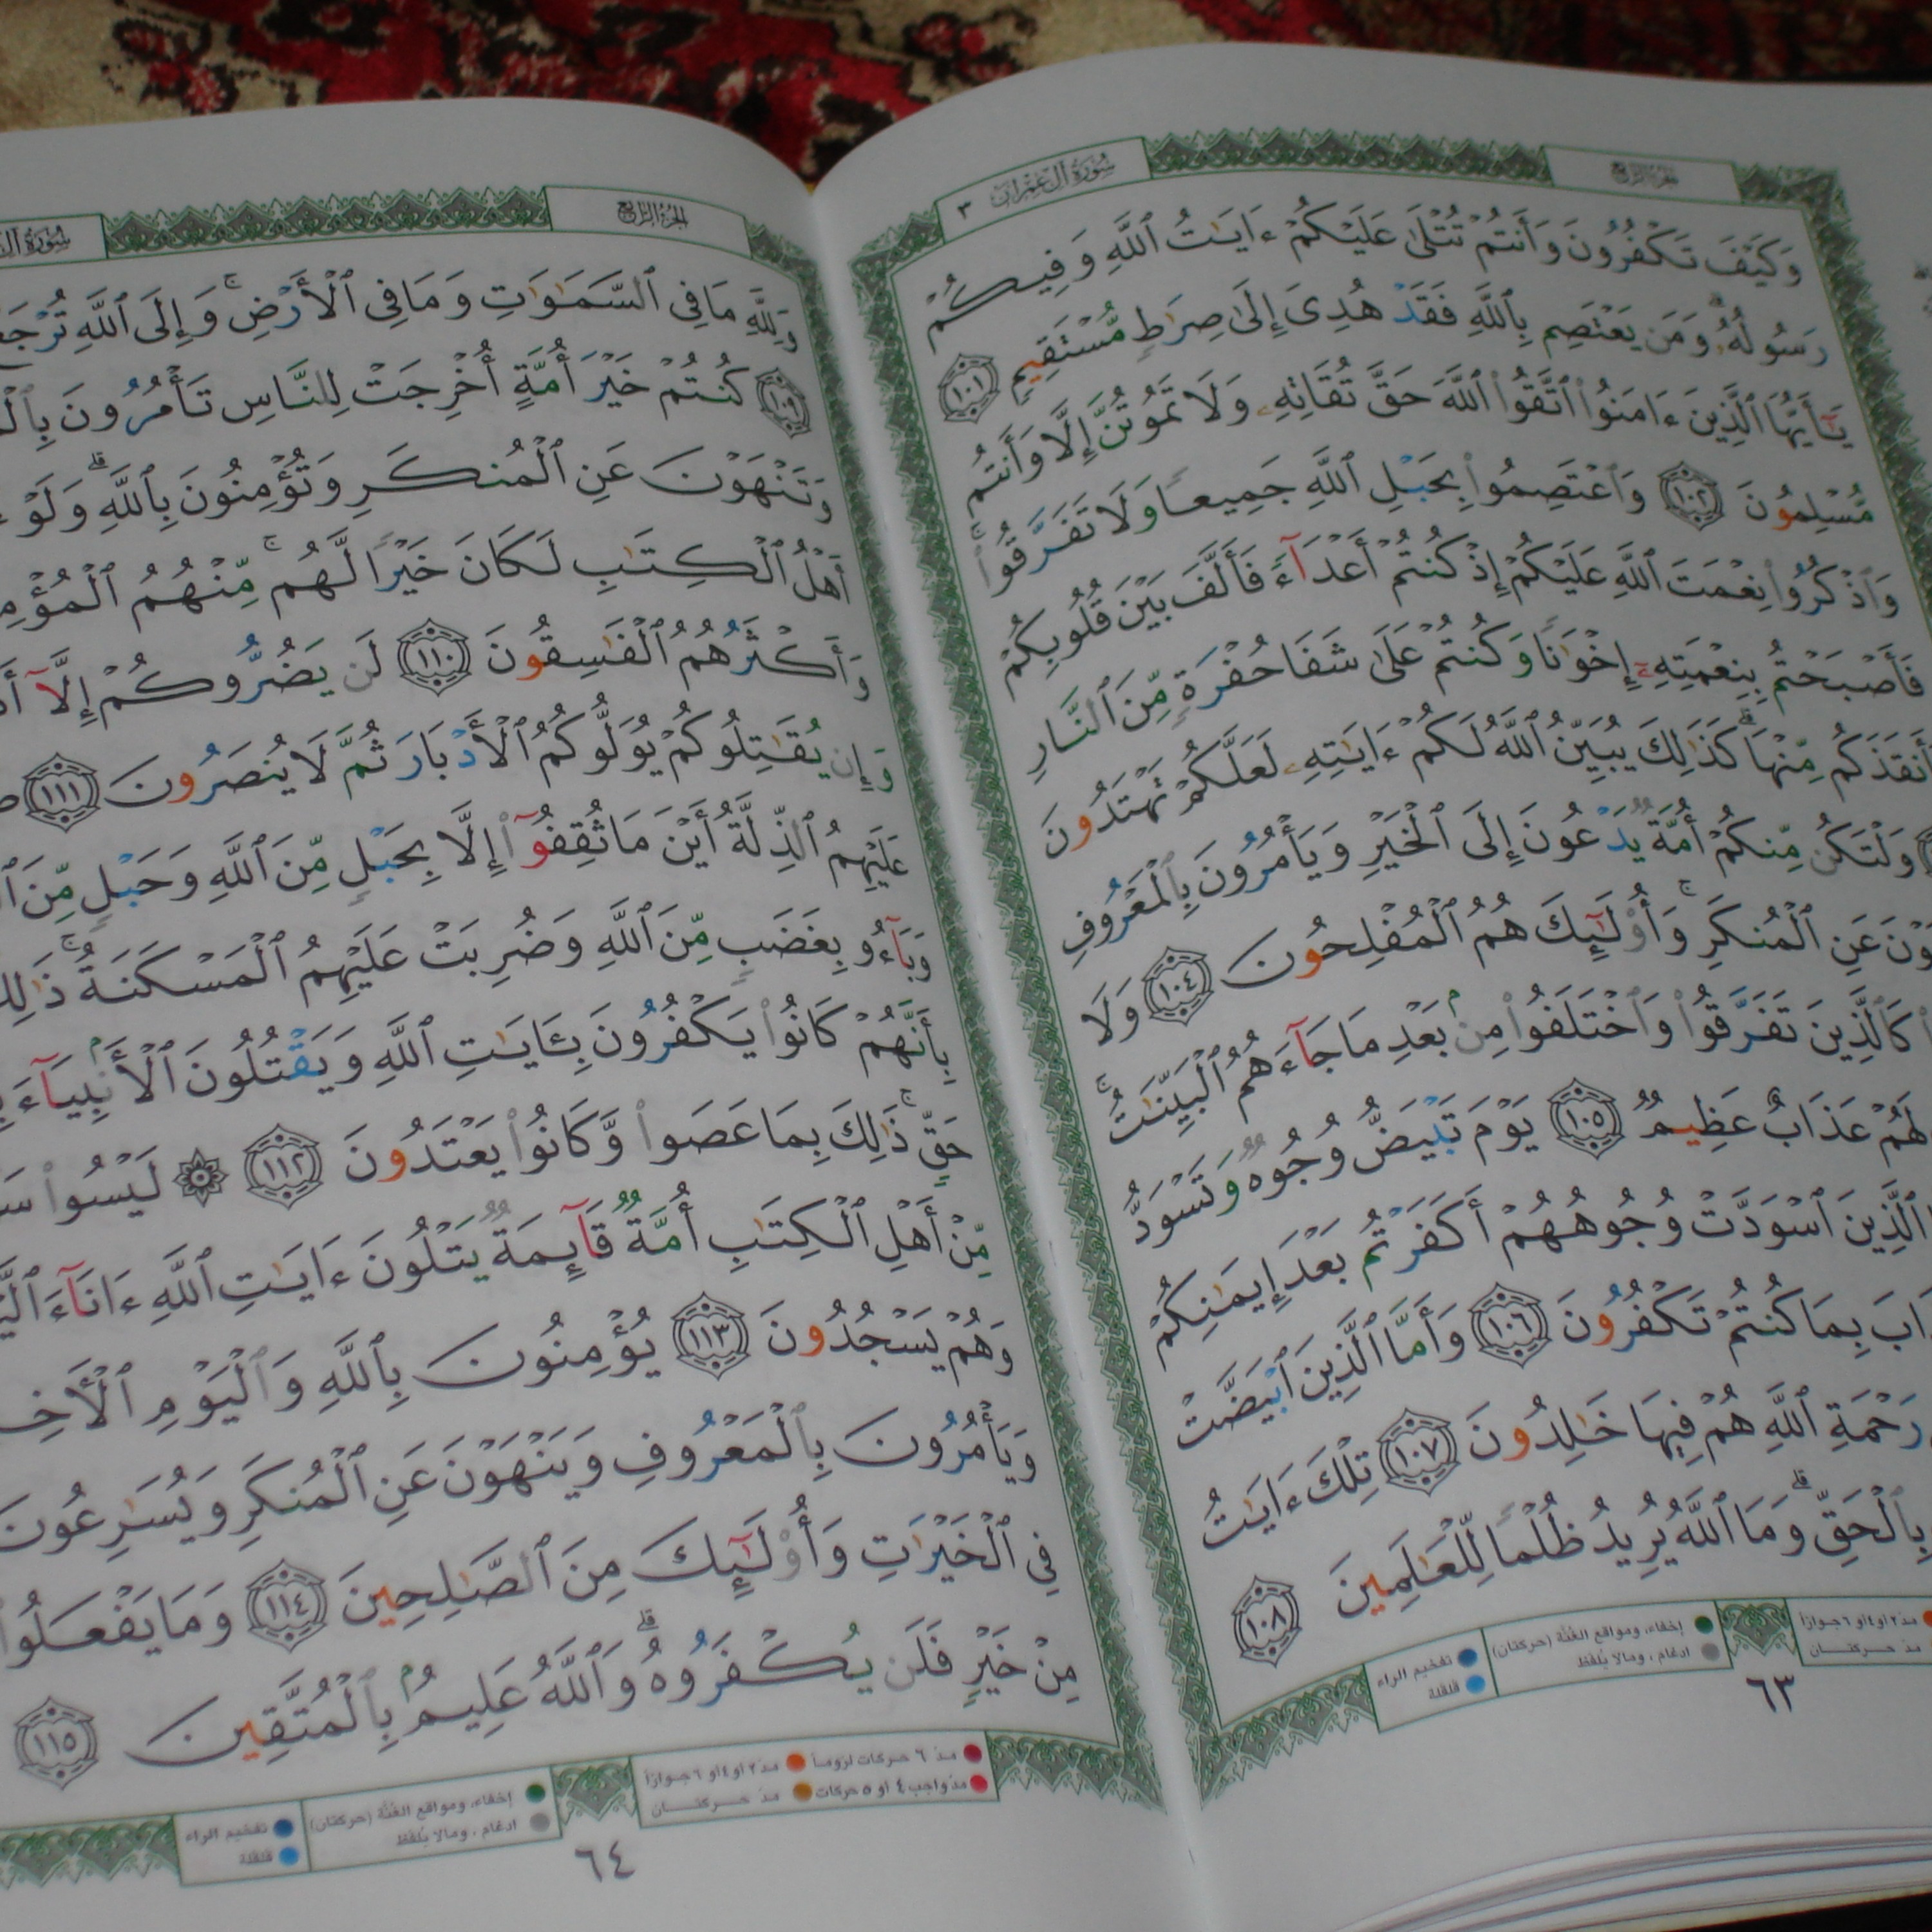 الجزء الرابع
سورة آل عمران ٣
وَكَيْفَ تَكْفُرُونَ وَأَنتُمْ تُتْلَىٰ عَلَيْكُمْ ءَايَـٰتُ ٱللَّهِ وَفِيكُمْ
رَسُولُهُۥ ۗ وَمَن يَعْتَصِم بِٱللَّهِ فَقَدْ هُدِىَ إِلَىٰ صِرَٰطٍ مُّسْتَقِيمٍ ١٠١
يَـٰٓأَيُّهَا ٱلَّذِينَ ءَامَنُوا۟ ٱتَّقُوا۟ ٱللَّهَ حَقَّ تُقَاتِهِۦ وَلَا تَمُوتُنَّ إِلَّا وَأَنتُم
مُّسْلِمُونَ ١٠٢ وَٱعْتَصِمُوا۟ بِحَبْلِ ٱللَّهِ جَمِيعًا وَلَا تَفَرَّقُوا۟ ۚ
وَٱذْكُرُوا۟ نِعْمَتَ ٱللَّهِ عَلَيْكُمْ إِذْ كُنتُمْ أَعْدَآءً فَأَلَّفَ بَيْنَ قُلُوبِكُمْ
فَأَصْبَحْتُم بِنِعْمَتِهِۦٓ إِخْوَٰنًا وَكُنتُمْ عَلَىٰ شَفَا حُفْرَةٍ مِّنَ ٱلنَّارِ
فَأَنقَذَكُم مِّنْهَا ۗ كَذَٰلِكَ يُبَيِّنُ ٱللَّهُ لَكُمْ ءَايَـٰتِهِۦ لَعَلَّكُمْ تَهْتَدُونَ
وَلْتَكُن مِّنكُمْ أُمَّةٌ يَدْعُونَ إِلَى ٱلْخَيْرِ وَيَأْمُرُونَ بِٱلْمَعْرُوفِ
عَنِ ٱلْمُنكَرِ ۚ وَأُو۟لَـٰٓئِكَ هُمُ ٱلْمُفْلِحُونَ ١٠٤ وَلَا
كَٱلَّذِينَ تَفَرَّقُوا۟ وَٱخْتَلَفُوا۟ مِنۢ بَعْدِ مَا جَآءَهُمُ ٱلْبَيِّنَـٰتُ ۚ
لَهُمْ عَذَابٌ عَظِيمٌ ١٠٥ يَوْمَ تَبْيَضُّ وُجُوهٌ وَتَسْوَدُّ
ٱلَّذِينَ ٱسْوَدَّتْ وُجُوهُهُمْ أَكَفَرْتُم بَعْدَ إِيمَـٰنِكُمْ
بِمَا كُنتُمْ تَكْفُرُونَ ١٠٦ وَأَمَّا ٱلَّذِينَ ٱبْيَضَّتْ
رَحْمَةِ ٱللَّهِ هُمْ فِيهَا خَـٰلِدُونَ ١٠٧ تِلْكَ ءَايَـٰتُ
بِٱلْحَقِّ ۗ وَمَا ٱللَّهُ يُرِيدُ ظُلْمًا لِّلْعَـٰلَمِينَ ١٠٨
مدّ ٢ او ٤ او ٦ جوازاً
مدّ حركتان
إخفاء، ومواقع الغُنَّة (حركتان)
ادغام، ومالا يُلفَظ
تفخيم الراء
قلقلة
٦٣
الجزء الرابع
سورة
وَلِلَّهِ مَا فِى ٱلسَّمَـٰوَٰتِ وَمَا فِى ٱلْأَرْضِ ۚ وَإِلَى ٱللَّهِ
١٠٩ كُنتُمْ خَيْرَ أُمَّةٍ أُخْرِجَتْ لِلنَّاسِ تَأْمُرُونَ
وَتَنْهَوْنَ عَنِ ٱلْمُنكَرِ وَتُؤْمِنُونَ بِٱللَّهِ ۗ وَلَوْ
أَهْلُ ٱلْكِتَـٰبِ لَكَانَ خَيْرًا لَّهُم ۚ مِّنْهُمُ
وَأَكْثَرُهُمُ ٱلْفَـٰسِقُونَ ١١٠ لَن يَضُرُّوكُمْ إِلَّآ
وَإِن يُقَـٰتِلُوكُمْ يُوَلُّوكُمُ ٱلْأَدْبَارَ ثُمَّ لَا يُنصَرُونَ ١١١
عَلَيْهِمُ ٱلذِّلَّةُ أَيْنَ مَا ثُقِفُوٓا۟ إِلَّا بِحَبْلٍ مِّنَ ٱللَّهِ وَحَبْلٍ مِّنَ
وَبَآءُو بِغَضَبٍ مِّنَ ٱللَّهِ وَضُرِبَتْ عَلَيْهِمُ ٱلْمَسْكَنَةُ ۚ
بِأَنَّهُمْ كَانُوا۟ يَكْفُرُونَ بِـَٔايَـٰتِ ٱللَّهِ وَيَقْتُلُونَ ٱلْأَنۢبِيَآءَ
حَقٍّ ۚ ذَٰلِكَ بِمَا عَصَوا۟ وَّكَانُوا۟ يَعْتَدُونَ ١١٢ ۞ لَيْسُوا۟
مِّنْ أَهْلِ ٱلْكِتَـٰبِ أُمَّةٌ قَآئِمَةٌ يَتْلُونَ ءَايَـٰتِ ٱللَّهِ ءَانَآءَ
وَهُمْ يَسْجُدُونَ ١١٣ يُؤْمِنُونَ بِٱللَّهِ وَٱلْيَوْمِ
وَيَأْمُرُونَ بِٱلْمَعْرُوفِ وَيَنْهَوْنَ عَنِ ٱلْمُنكَرِ وَيُسَـٰرِعُونَ
فِى ٱلْخَيْرَٰتِ وَأُو۟لَـٰٓئِكَ مِنَ ٱلصَّـٰلِحِينَ ١١٤ وَمَا يَفْعَلُوا۟
مِنْ خَيْرٍ فَلَن يُكْفَرُوهُ ۗ وَٱللَّهُ عَلِيمٌۢ بِٱلْمُتَّقِينَ ١١٥
مدّ ٦ حركات لزوماً
مدّ ٢ او ٤ او ٦ جوازاً
مدّ واجب ٤ او ٥ حركات
مدّ حركتان
إخفاء، ومواقع الغُنَّة (حركتان)
ادغام، ومالا يُلفَظ
تفخيم الراء
قلقلة
٦٤